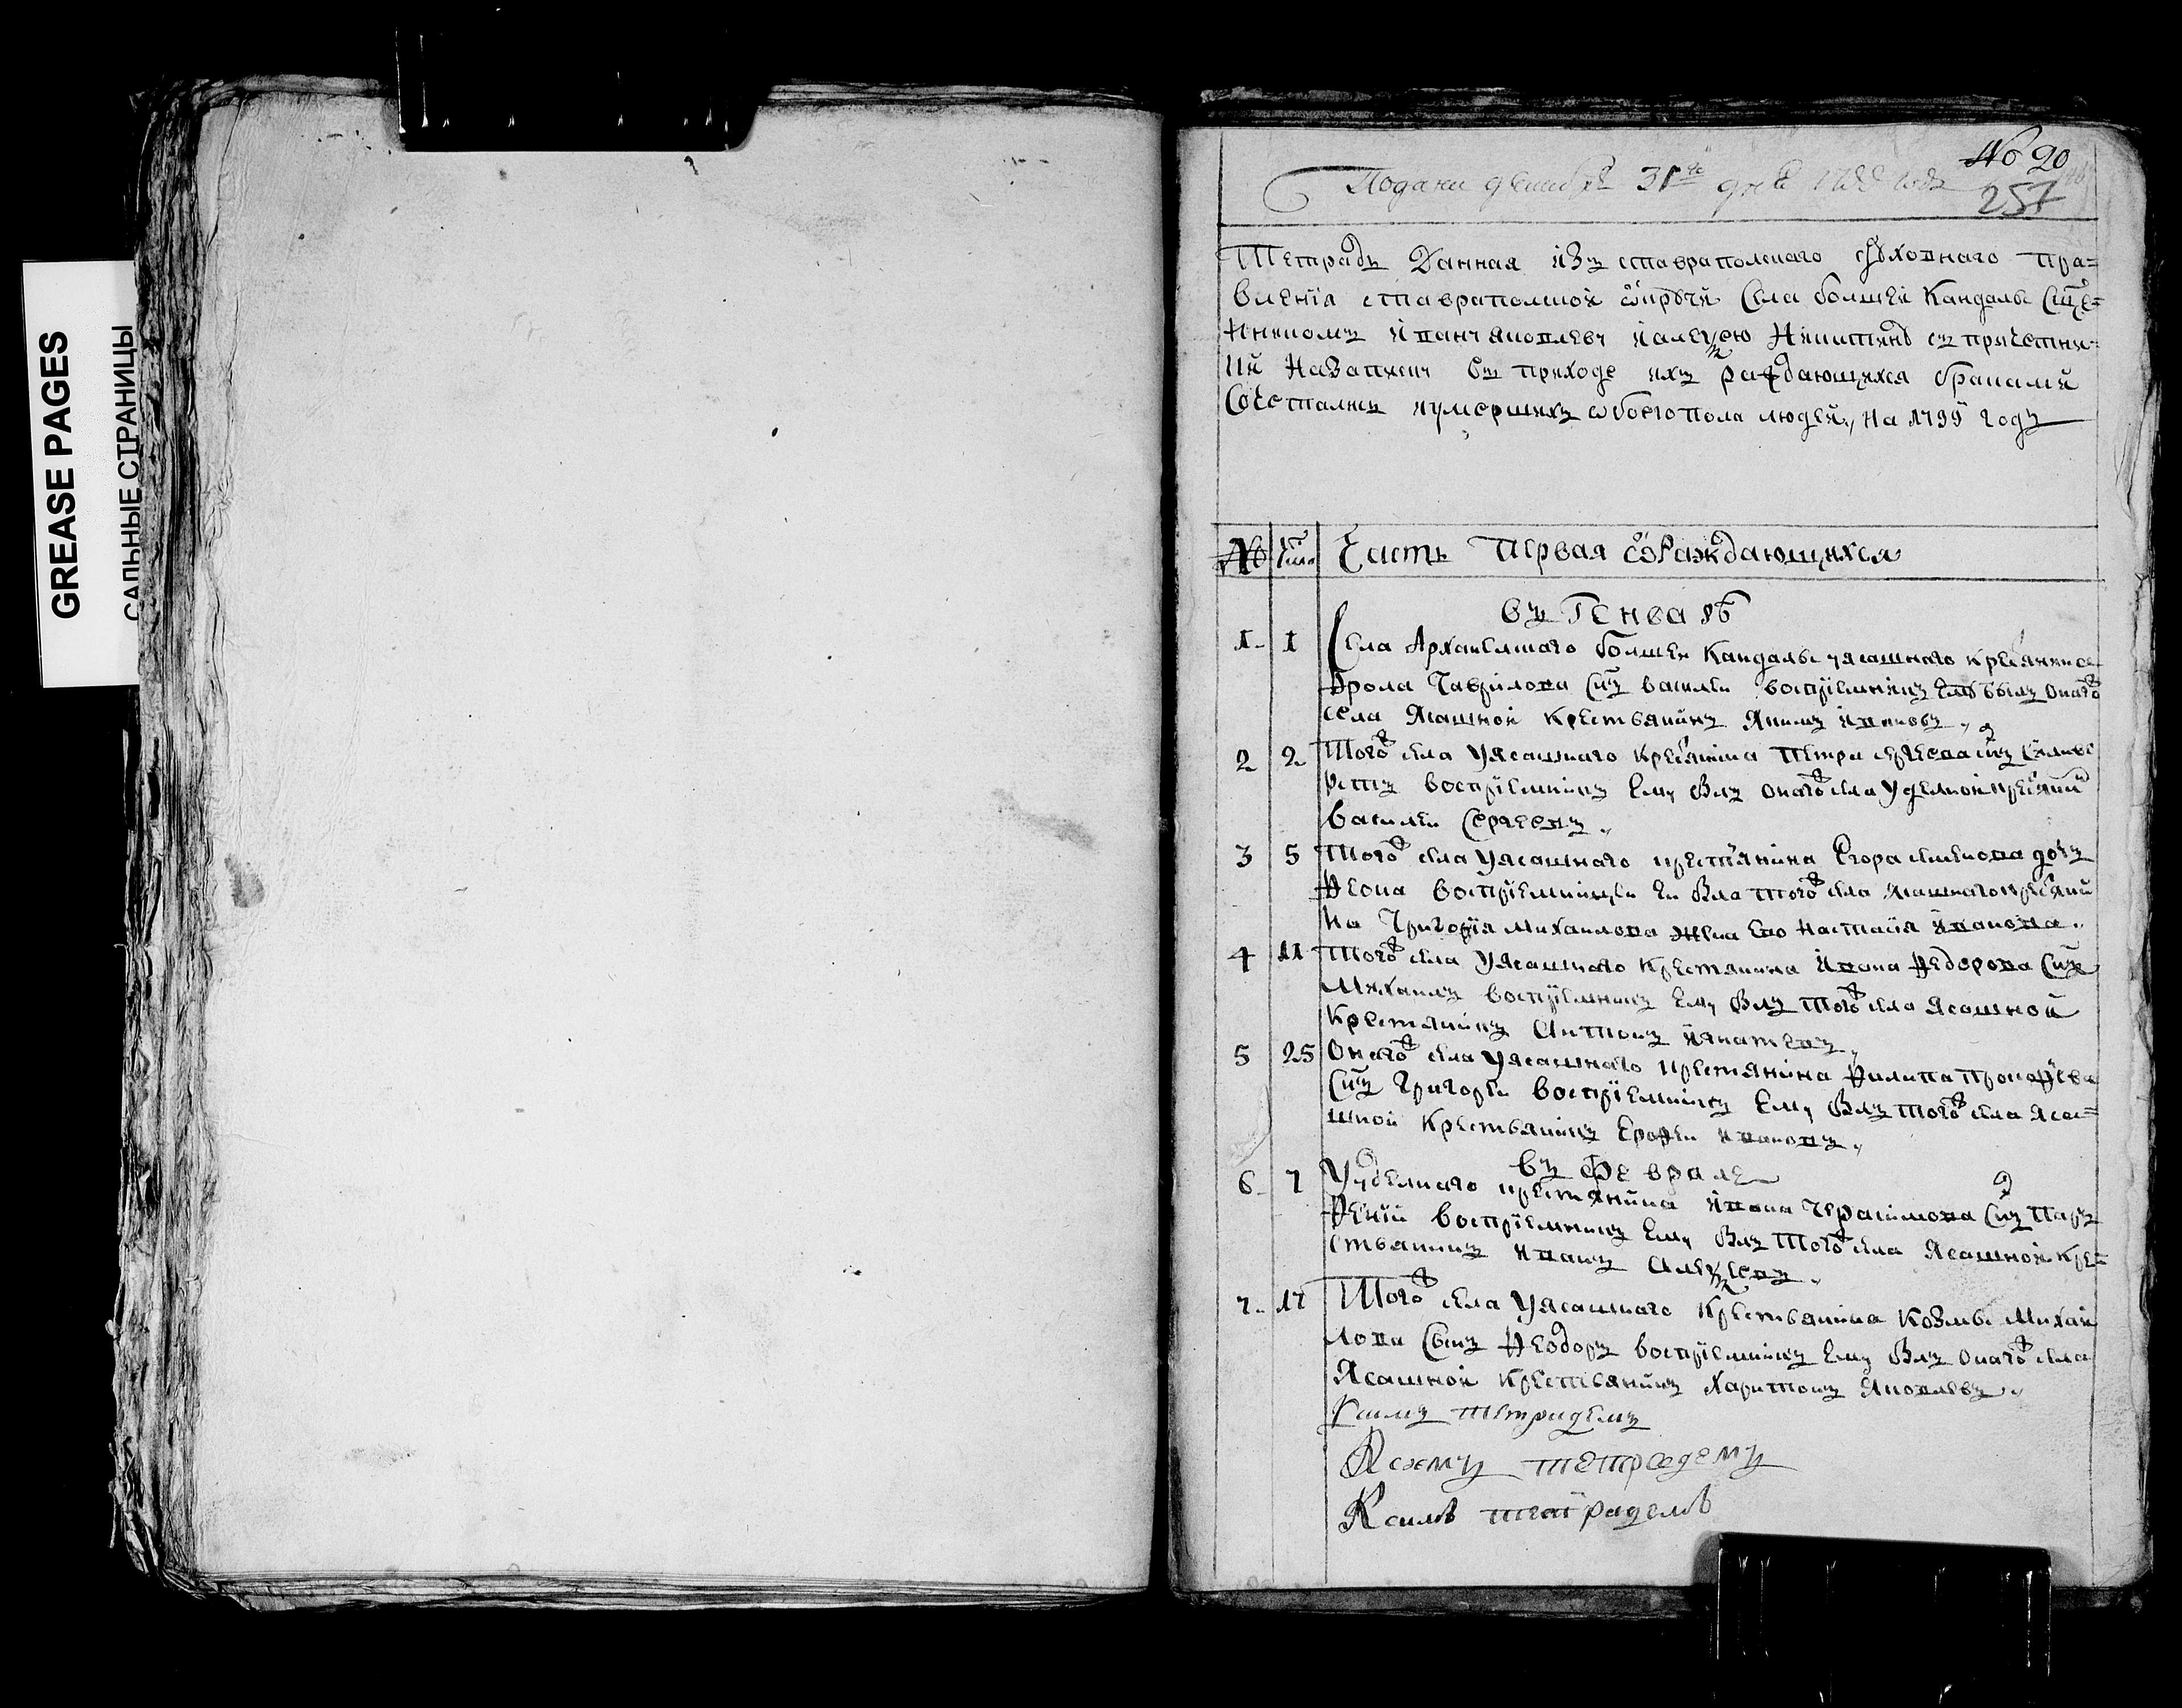 GREASE PAGES
САЛЬНЫЕ СТРАНИЦЫ
№ 20
Подани декабря 31 го дня
257
Тетрадь Данная изъ ставраполскаго духовнаго пра=
вленїя ставраполской округи Села болшей Кандалы Сще=
нникомъ Иванъ Яковлевъ Иалеѯею Никитинъ съ причетни=
ки Назаписи въ приходе ихъ раждающихся бракамъ
Сочеталихъ иумершихъ обоего пола людей, на 1799 годъ
№ Чис. Часть Первая о Раждающихся
въ Генваре
1. 1 Села Архангелскаго болшей Кандалы уясашнаго кресянина
Фрола Гаврилова Снъ василеи восприемникъ емꙋ былъ онаго ж
села Ясашной Крестьянинъ Якимъ Ивановъ
2 2 Того ж села Уясашнаго Кресянина Петра сергеева снъ Силиве
рстъ восприемникъ Ему Былъ онаго ж села Уделной кресянин
василеи Сергеевъ
3 5 Того ж села уясашнаго крестянина Егора семенова дочъ
Ѳеона восприемница Еи Была того ж села ясашнаго кресяни
на Григорїя михаилова жена Ево настасїя Иванова
4 11 Того ж села Уясашнаго Крестянина Ивана Ѳедорова Снъ
Михаилъ восприемникъ Ему Былъ того ж села Ясашной
Крестянинъ Антонъ Игнатевъ
5 25 Онаго ж села Уясашнаго крестянина Филипа Прокофїева
Снъ Григореи восприемникъ Ему Былъ того ж села Яса=
шной Крестьянинъ Ерофеи Ивановъ
въ феврале
6 7 Ууделнаго крестянина Ивана Герасимова Снъ Пар
ѳенїй восприемникъ Ему Былъ того ж села Ясашной Кре=
стьянинъ Иванъ Алеѯеевъ
7 17 Того ж села Уясашнаго Крестьянина Козмы Михаи
лова Сынъ Ѳеодоръ восприемникъ Ему Былъ онаго ж села
Ясашной Крестьянинъ Харитонъ Яковлевъ
Ксимъ тетрадемъ
Ксемъ тетрадемъ
Ксимъ тетрадемъ